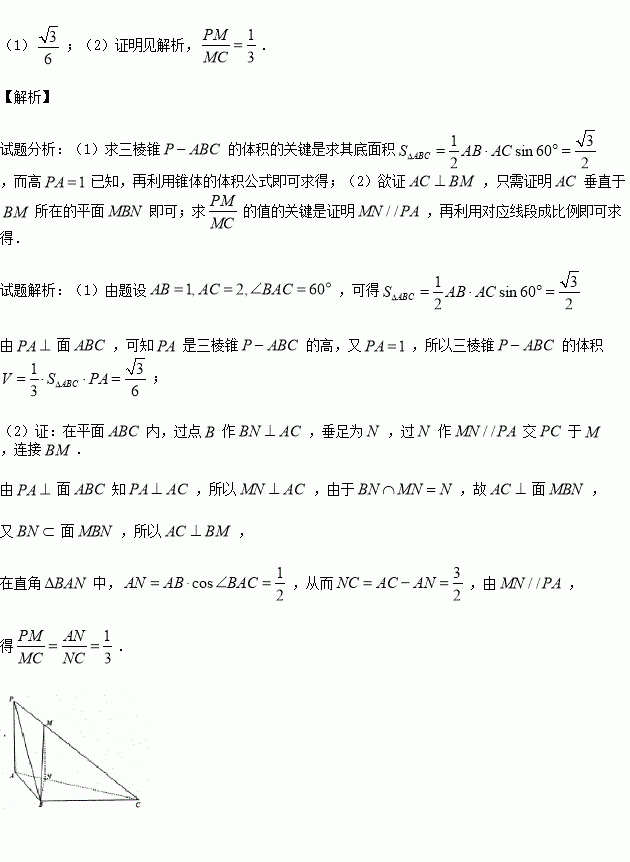 （1）√3/6；（2）证明见解析，PM/MC=1/3．
【解析】
试题分析：（1）求三棱锥P−ABC的体积的关键是求其底面积S△ABC=1/2AB·ACsin60°=√3/2
，而高PA=1已知，再利用锥体的体积公式即可求得；（2）欲证AC⊥BM，只需证明AC垂直于
BM所在的平面MBN即可；求PM/MC的值的关键是证明MN//PA，再利用对应线段成比例即可求
得．
试题解析：（1）由题设AB=1,AC=2,∠BAC=60°，可得S△ABC=1/2AB·ACsin60°=√3/2
由PA⊥面ABC，可知PA是三棱锥P−ABC的高，又PA=1，所以三棱锥P−ABC的体积
V=1/3·S△ABC·PA=√3/6；
（2）证：在平面ABC内，过点B作BN⊥AC，垂足为N，过N作MN//PA交PC于M
，连接BM．
由PA⊥面ABC知PA⊥AC，所以MN⊥AC，由于BN∩MN=N，故AC⊥面MBN，
又BN⊂面MBN，所以AC⊥BM，
在直角ΔBAN中，AN=AB·cos∠BAC=1/2，从而NC=AC−AN=3/2，由MN//PA，
得PM/MC=AN/NC=1/3．
P
M
A N
B C